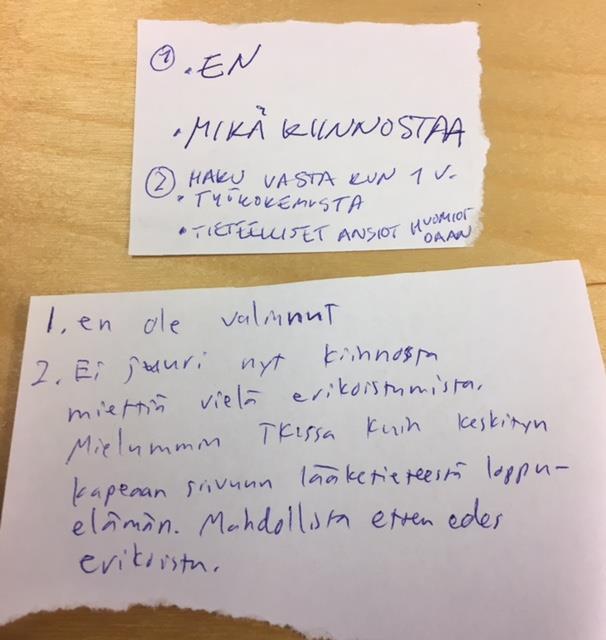 ① • EN
• MIKÄ KIINNOSTAA
② HAKU VASTA KUN 1 V.
• TYÖKOKEMUSTA
• TIETEELLISET ANSIOT HUOMIOT
OAAN
1. en ole valinnut
2. Ei juuri nyt kiinnosta
miettiä vielä erikoistumista.
Mielummin TKissa kuin keskityn
kapeaan siivuun lääketieteestä loppu-
elämän. Mahdollista etten edes
erikoistu.